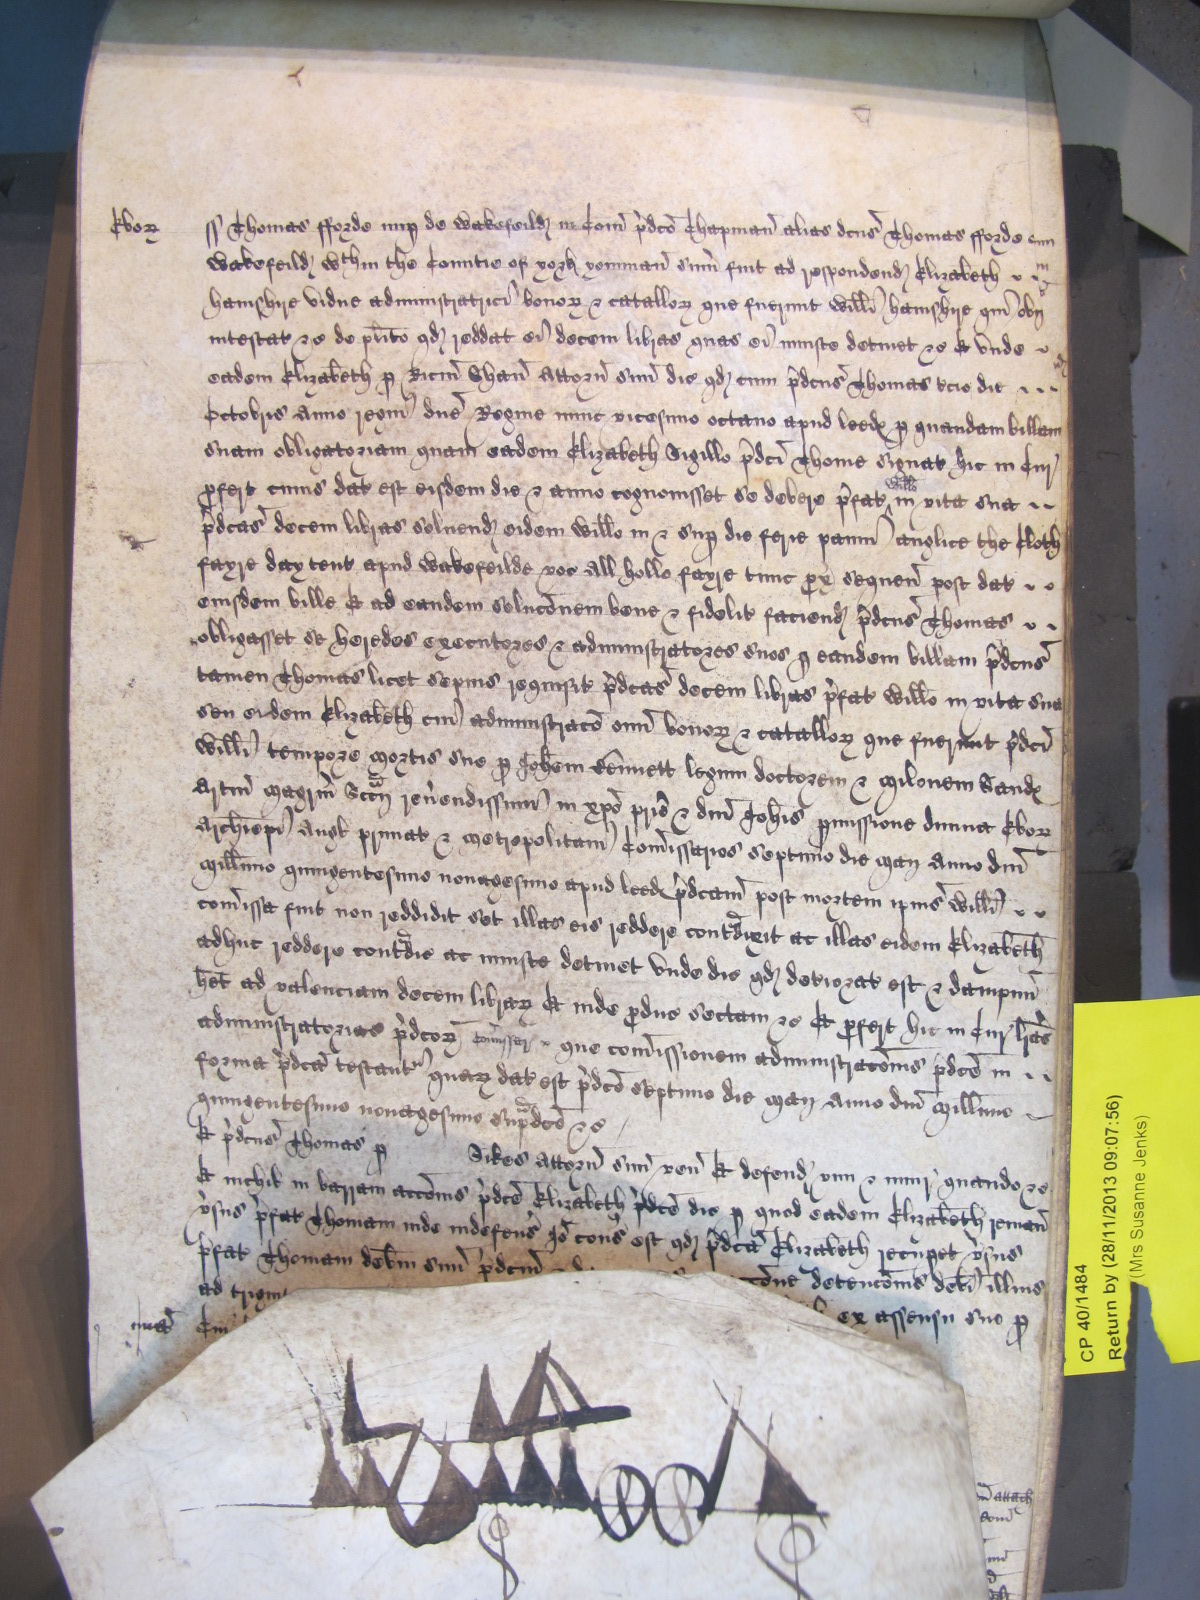 Ebor
ss Thomas fforde nup de Wakefeild in Com p̄dco Chapman alias dcus Thomas fforde
Wakefeild wthin the Countie of york yeoman sum̄ fuit ad respondend Elizabeth
hamshire vidue administratrici bonor & catallor que fuerunt Willi hamshire qui obijt
intestat &c de plito qd reddat ei decem libras quas ei iniuste detinet &c Et vnde
eadem Elizabeth p Ricm Attorn suu dic qd cum p̄dcus Thomas die
Octobris Anno regni dne Regine nunc vicesimo octauo apud leedes p quandam billam
suam obligatoriam quam eadem Elizabeth Sigillo p̄dci Thome signat hic in Cur
profert cuius dat est eisdem die & anno cognouisset se debere p̄fat Willo in vita sua
p̄dcas decem libras soluend eidem Willo in & sup die ferie panni anglice the Cloth
fayre day tent apud Wakefeilde voc All hollo fayre tunc prox sequen post dat
eiusdem bille Et ad eandem soluconem bene & fidelit faciend p̄dcus Thomas
obligasset se heredes executores & administratores suos p eandem billam p̄dcus
tamen Thomas licet sepius requisit p̄dcas decem libras p̄fat Willo in vita sua
seu eidem Elizabeth cui administraco omi bonor & catallor que fuerunt p̄dci
Willi tempore mortis sue p Johem Bennett legum doctorem & Milonem Sandes
Armi reuendissimi in xpo pris & dni Johis pmissione diuina Ebor
Archiepi Angl primat & Metropolitan Comissarios septimo die Maij Anno dni
Millimo quingentesimo nonagesimo apud leedes p̄dcam post mortem ipius Willi
comissa fuit non reddidit set illas eis reddere contradixit ac illas eidem Elizabeth
adhuc reddere contradic ac iniuste detinet Vnde dic qd deteriorat est & dampnu
het ad valenciam decem librar Et inde produc sectam &c Et profert hic in Cur lras
administratorias p̄dcor Comissar que comissionem administraconis p̄dce in
forma p̄dca testant quar dat est p̄dco septimo die Maij Anno dni Millimo
quingentesimo nonagesimo supradco &c
Et p̄dcus Thomas p Sikes Attorn suu ven Et defend vim & iniur quando &c
Et nichil in barram accionis p̄dce Elizabeth p̄dce dic p quod eadem Elizabeth reman
vsus p̄fat Thomam inde indefens Io cons est qd p̄dca Elizabeth recupet vsus
p̄fat Thomam debm suu p̄dcm detenconis debi illius
ad trigint ex assensu suo p
Cur
CP 40/1484
Return by (28/11/2013 09:07:56)
(Mrs Susanne Jenks)